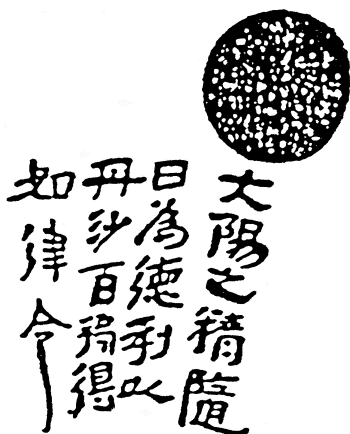 大陽之精隨
日為德利以
丹沙百福得
如律令